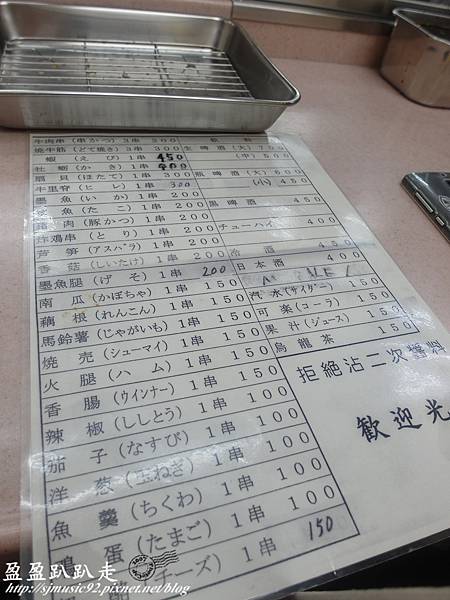 牛肉串(串かつ) 3串 200
焼牛筋(どて焼き) 3串 300
蝦(えび) 1串 450
牡蠣(かき) 1串 400
扇貝(ほたて) 1串 300
牛里脊(ヒレ) 1串 300
墨魚(いか) 1串 200
章魚(たこ) 1串 200
豬肉(豚かつ) 1串 200
炸鶏串(とり) 1串 200
芦筍(アスパラ) 1串 200
香菇(しいたけ) 1串 200
墨魚腿(げそ) 1串 200
南瓜(かぼちゃ) 1串 150
藕根(れんこん) 1串 150
馬鈴薯(じゃがいも) 1串 150
焼売(シューマイ) 1串 150
火腿(ハム) 1串 150
香腸(ウインナー) 1串 150
辣椒(ししとう) 1串 100
茄子(なすび) 1串 100
洋葱(玉ねぎ) 1串 100
魚羹(ちくわ) 1串 100
鶏蛋(たまご) 1串 100
チーズ) 1串 150
飲料
生啤酒(大) 700
(中) 500
瓶啤酒(大) 600
(小) 450
黒啤酒 450
チューハイ 400
冷酒
日本酒 450
汽水(サイダー) 150
可楽(コーラ) 150
果汁(ジュース) 150
烏龍茶 150
拒絶沾二次醤料
歓迎光
盈盈趴趴走
http://sjmusic92.pixnet.net/blog